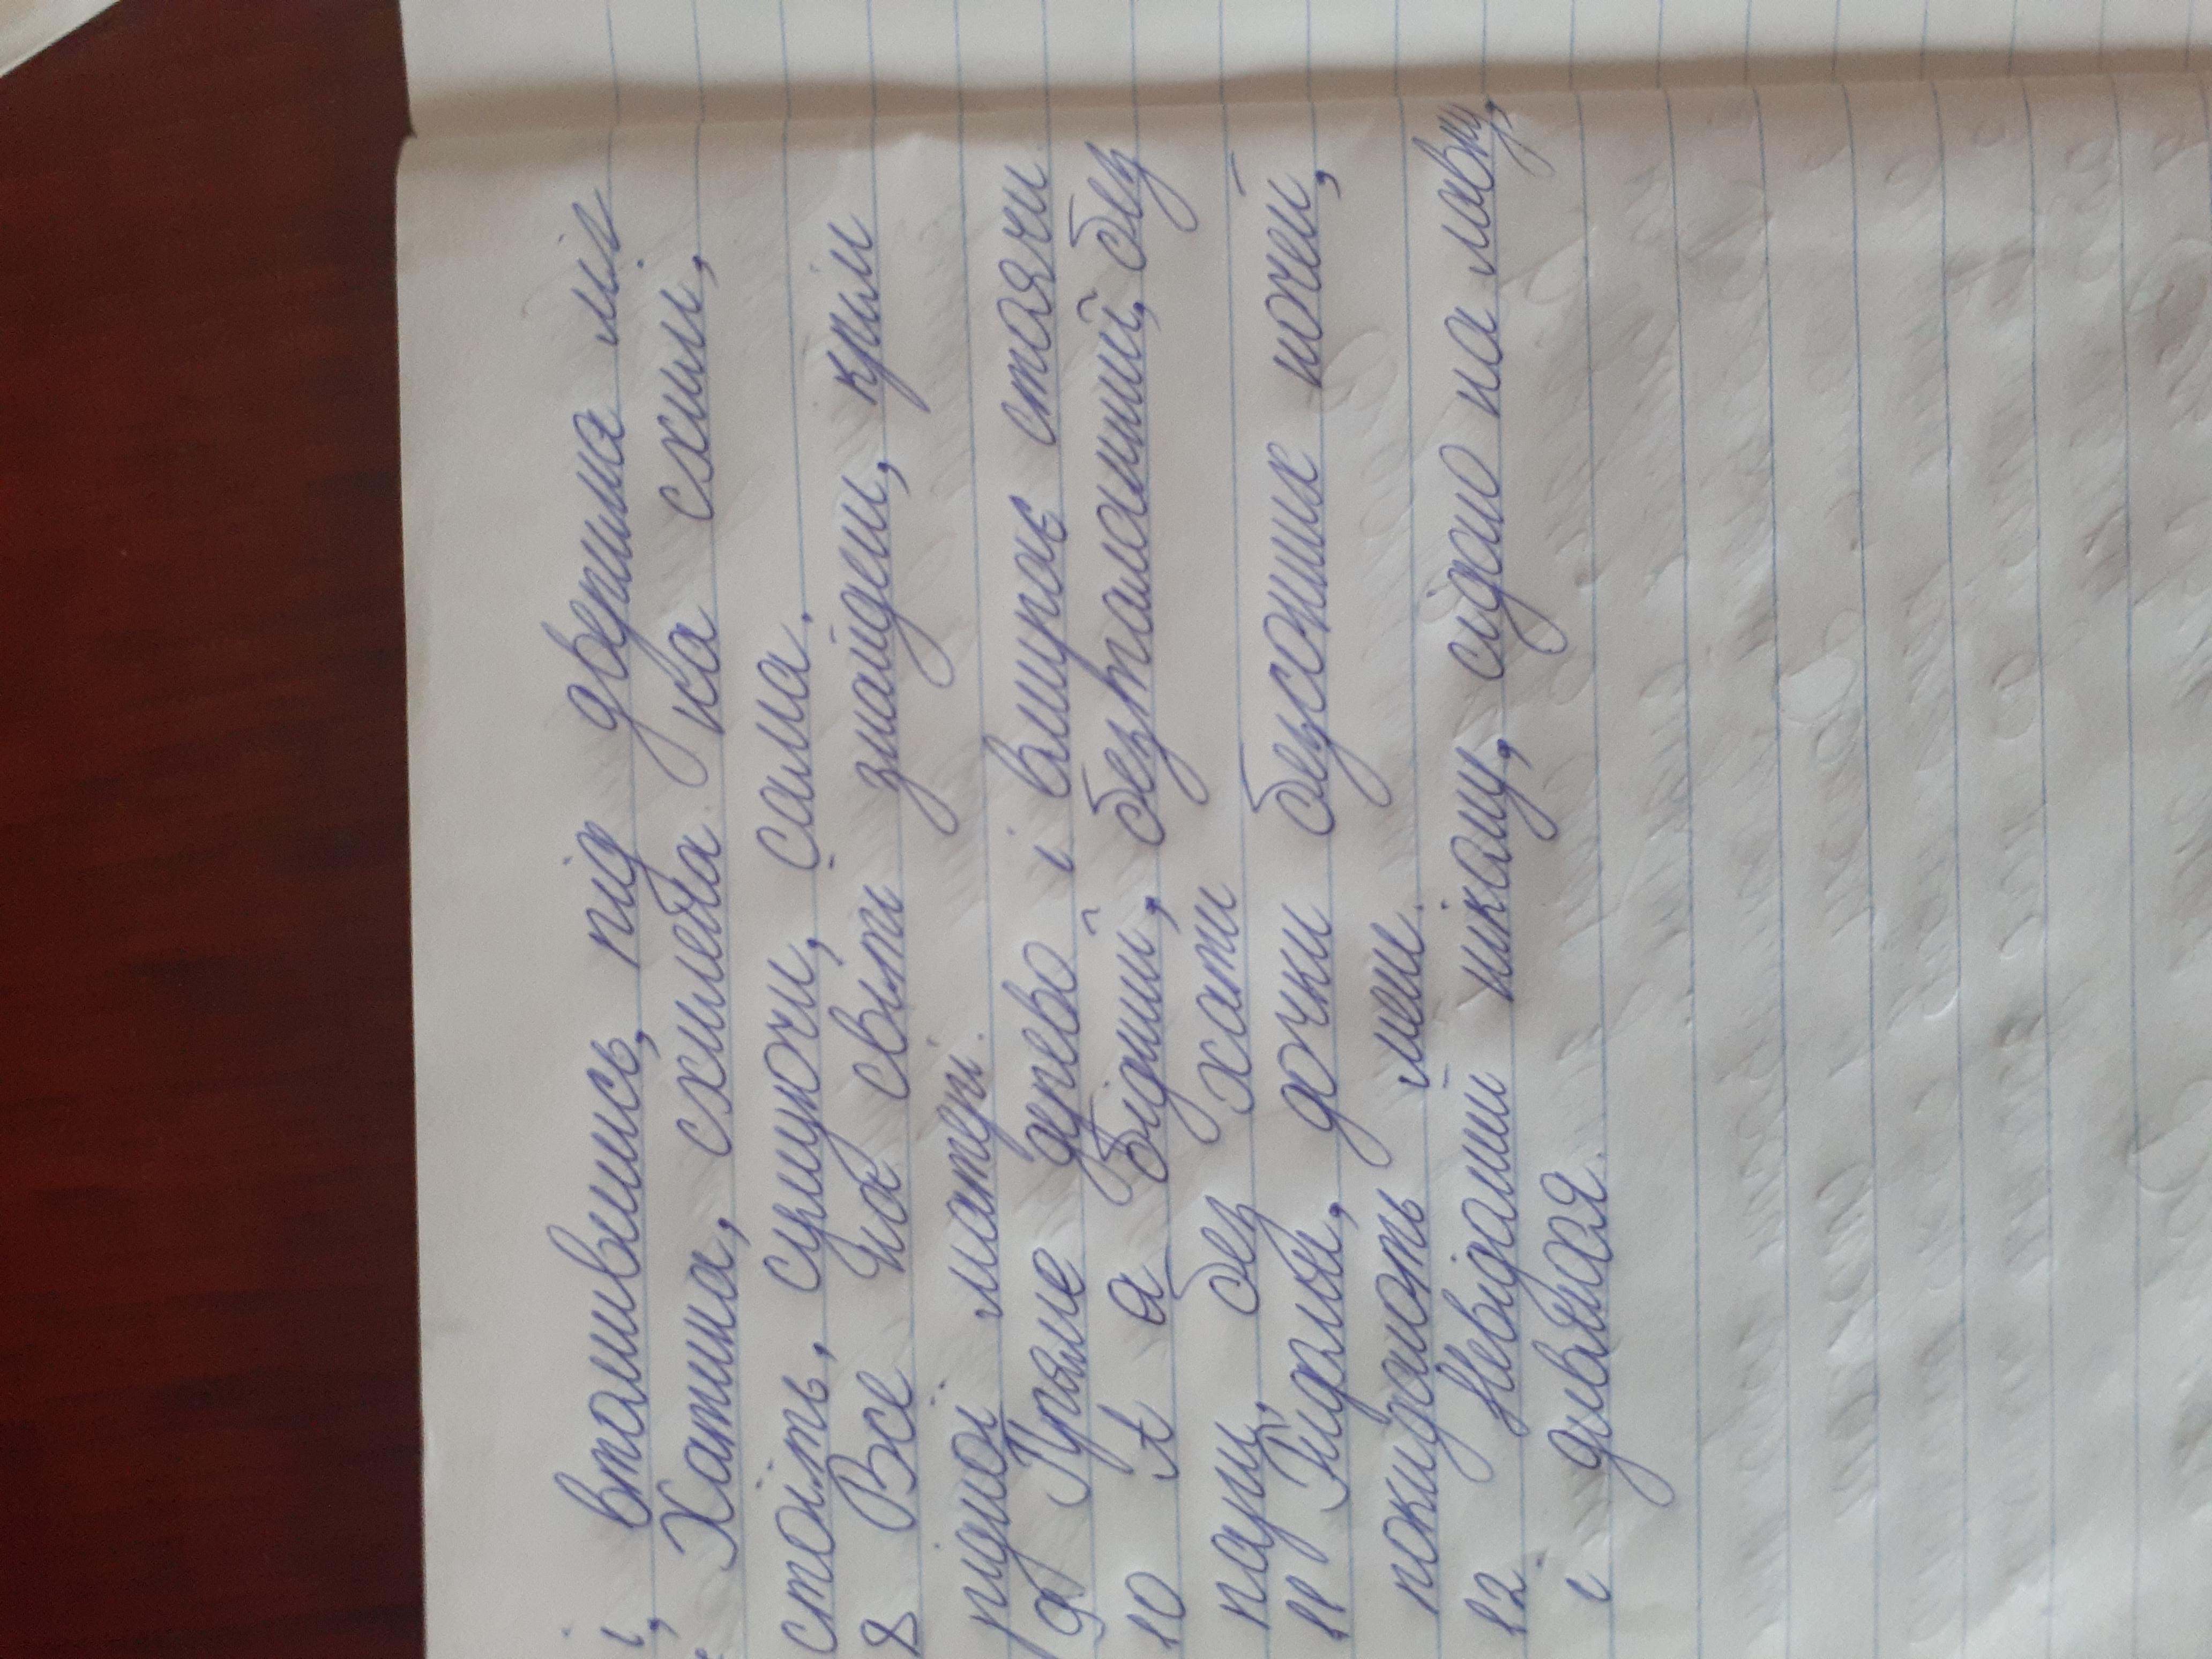 і, втомившись, під дверима ліг
Хатина, схилена на схил,
стоїть, сумуючи, сама.
8 Все на світі знайдеш, крім
рідної матері.
9 Пряме дерево і вмирає стоячи
10 А я бідний, безталанний, без
пари, без хати
11 Рида́ли, дочки безсонних ночей,
покидають мене.
12 Невідомий нікому, сідаю на лавку,
і дивлюся.